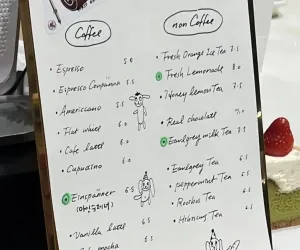 Coffee
• Espresso 5.0
• Espresso Conpánna 5.5
• Americcano 5.5
• Flat wheel 6.0
• Cafe latté 6.0
• Capucino 6.0
• Einspänner 6.5
(아인슈페너)
• Vanilla latté 6.5
mocha 6.5
non Coffee
• Fresh Orange Ice Tea 7.5
• Fresh Lemonade 8.0
• Honey lemon Tea 7.5
• Real chocolate 7.0
• Earlgrey milk Tea 7.5
• Earlgrey Tea 6.5
• Peppermint Tea 6.5
• Rooibos Tea 6.5
• Hibiscus Tea 6.5